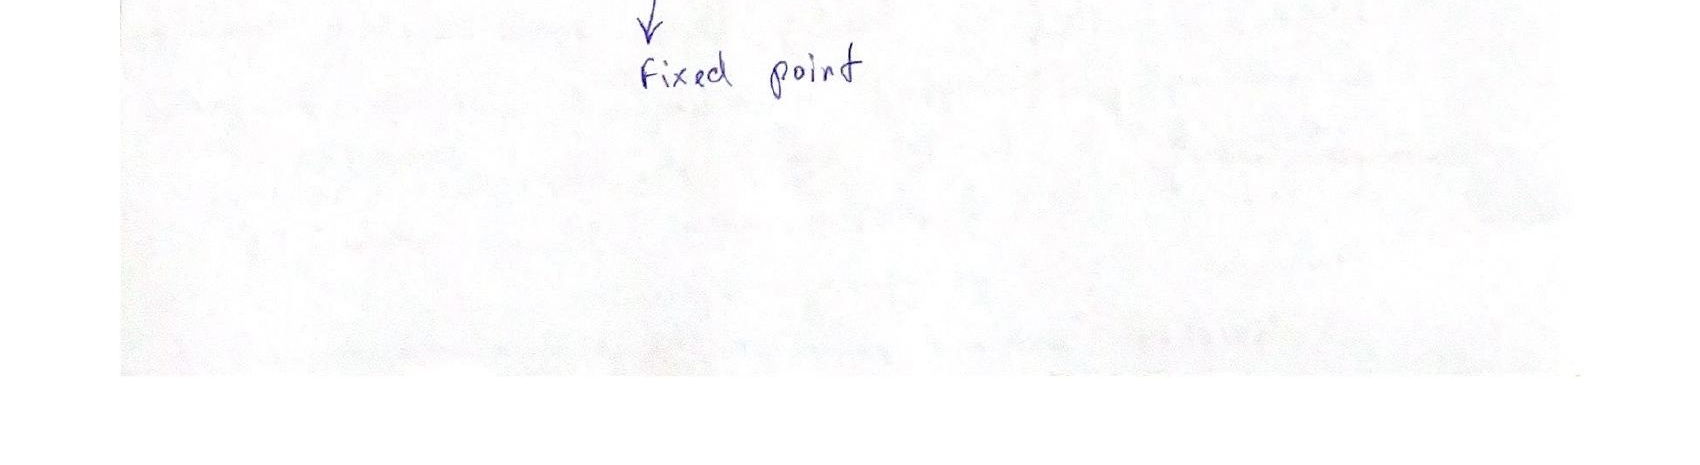 ↓
Fixed point